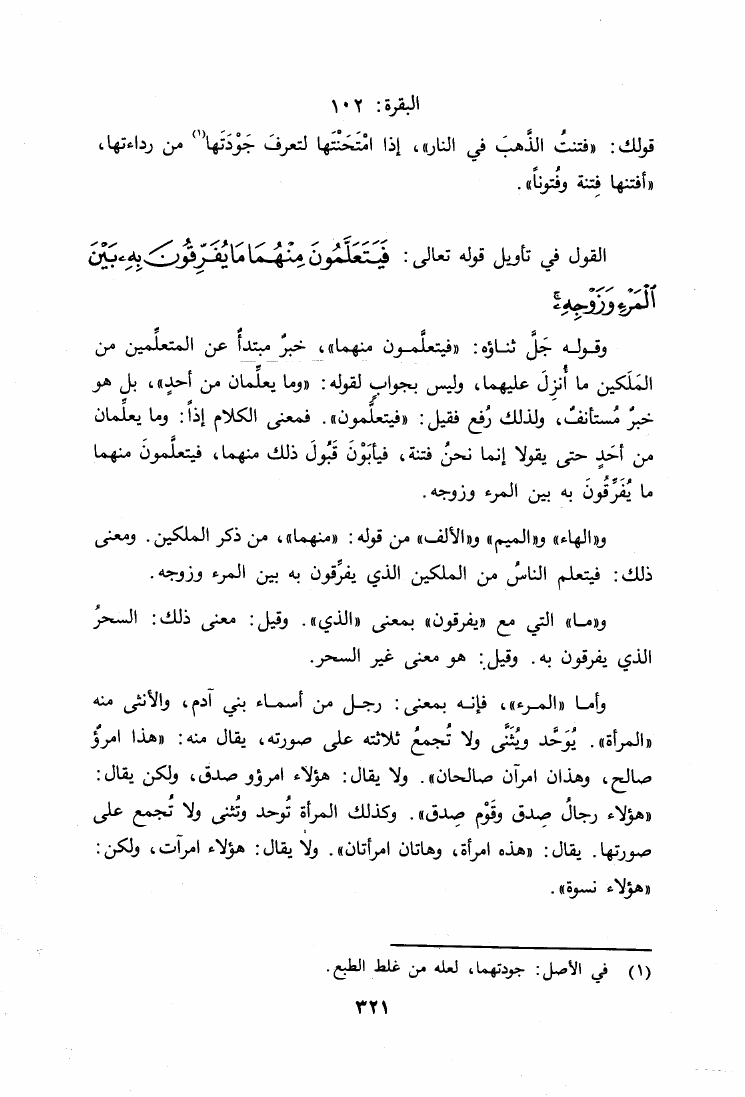 البقرة: ١٠٢
قولك: «فتنتُ الذَّهبَ في النار»، إذا امْتَحَنْتَها لتعرفَ جَوْدَتَها(١) من رداءتها،
«أفتنها فِتنة وفُتوناً».
القول في تأويل قوله تعالى: فَيَتَعَلَّمُونَ مِنْهُمَا مَا يُفَرِّقُونَ بِهِۦ بَيْنَ
ٱلْمَرْءِ وَزَوْجِهِۦۚ
وقوله جَلَّ ثناؤه: «فيتعلَّمون منهما»، خبرٌ مبتدأٌ عن المتعلِّمين من
المَلَكين ما أُنزِلَ عليهما، وليس بجوابٍ لقوله: «وما يعلِّمان من أحدٍ»، بل هو
خبرٌ مُستأنفٌ، ولذلك رُفع فقيل: «فيتعلَّمون». فمعنى الكلام إذاً: وما يعلِّمان
من أحَدٍ حتى يقولا إنما نحنُ فتنة، فيأبَوْنَ قَبُولَ ذلك منهما، فيتعلَّمونَ منهما
ما يُفَرِّقُونَ به بين المرء وزوجه.
و«الهاء» و«الميم» و«الألف» من قوله: «منهما»، من ذكر الملكين. ومعنى
ذلك: فيتعلم الناسُ من الملكين الذي يفرِّقون به بين المرء وزوجه.
و«ما» التي مع «يفرقون» بمعنى «الذي». وقيل: معنى ذلك: السحرُ
الذي يفرقون به. وقيل: هو معنى غير السحر.
وأما «المرء»، فإنه بمعنى: رجل من أسماء بني آدم، والأنثى منه
«المرأة». يُوَحَّد ويُثَنَّى ولا تُجمعُ ثلاثته على صورته، يقال منه: «هذا امرؤٌ
صالح، وهذان امرآن صالحان». ولا يقال: هؤلاء امرؤو صدق، ولكن يقال:
«هؤلاء رجالُ صِدق وقَوْم صِدق». وكذلك المرأة تُوحد وتُثنى ولا تُجمع على
صورتها. يقال: «هذه امرأة، وهاتان امرأتان». ولا يقال: هؤلاء امرآت، ولكن:
«هؤلاء نسوة».
(١) في الأصل: جودتهما، لعله من غلط الطبع.
٣٢١